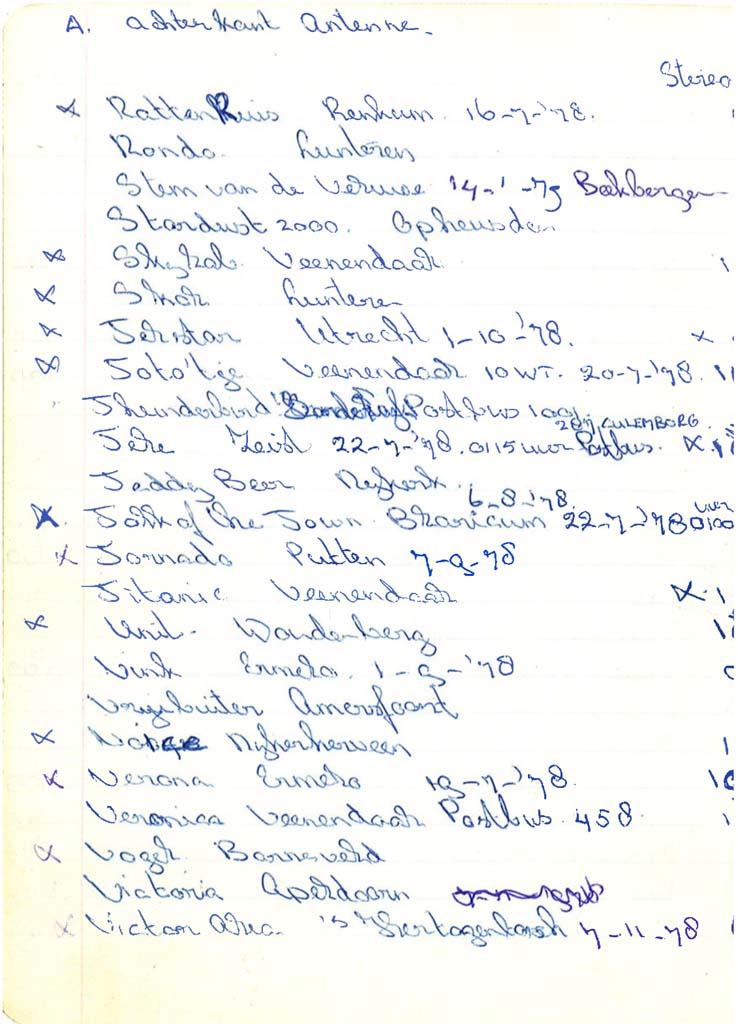 A. achterkant Antenne.
Stereo
x Rattenkuis Renkum. 16-7-'78.
Rondo. Lunteren
Stem van de Veluwe '14-1-79 Beekbergen
Stardust 2000. Opheusden
x Skylab Veenendaal 1
x Skol Lunteren
x Telstar Utrecht 1-10-'78. x
x Toto'tje Veenendaal 10WT. 20-7-'78. 11
Thunderbird Postbus 1001
287 CULEMBORG.
Tele Zeist 22-7-'78. 0115 uur Postbus. x.
Teddy Beer Nijkerk.
6-8-'78. uur
x. Talk of the Town. Blaricum 22-7-'78 0100
x Tornado Putten 7-9-78
Titanic Veenendaal x. 1
x Unil. Woudenberg
Vink Ermelo. 1-9-'78
Vrijbuiter Amersfoort
x Nijkerkerveen 1
x Verona Ermelo 19-7-'78. 10
Veronica Veenendaal Postbus 458 1
x Vogel Barneveld
Victoria Apeldoorn
x Victor Alfa. 's Hertogenbosh 7-11-78